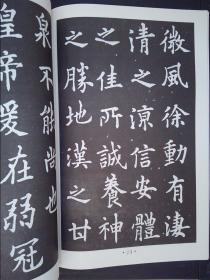 微風徐動有淒
清之涼信安體
之佳所誠養神
之勝地漢之甘
泉不能尚也
皇帝爰在弱冠